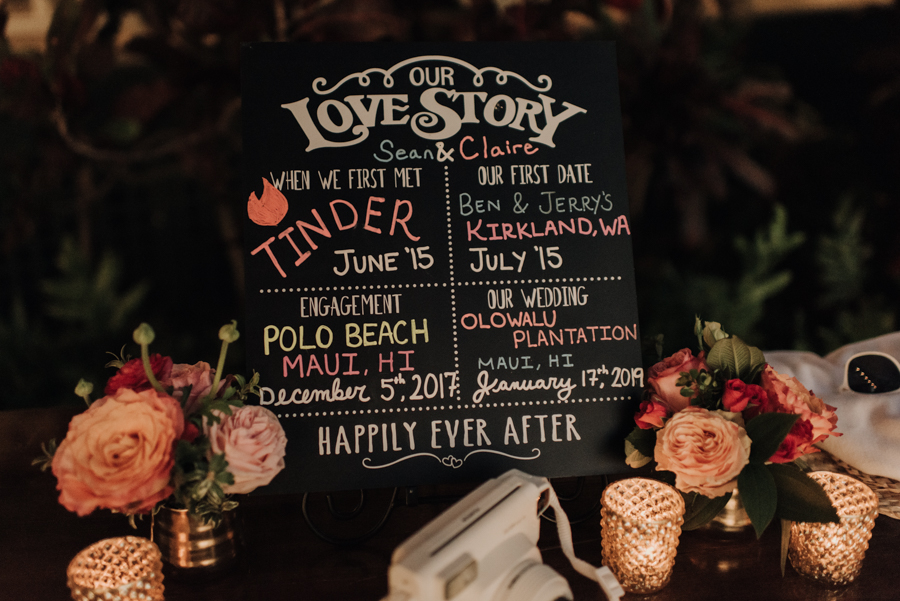 OUR
LOVE STORY
Sean & Claire
WHEN WE FIRST MET
TINDER
JUNE '15
OUR FIRST DATE
BEN & JERRY'S
KIRKLAND, WA
JULY '15
ENGAGEMENT
POLO BEACH
MAUI, HI
December 5th, 2017
OUR WEDDING
OLOWALU
PLANTATION
MAUI, HI
January 17th, 2019
HAPPILY EVER AFTER